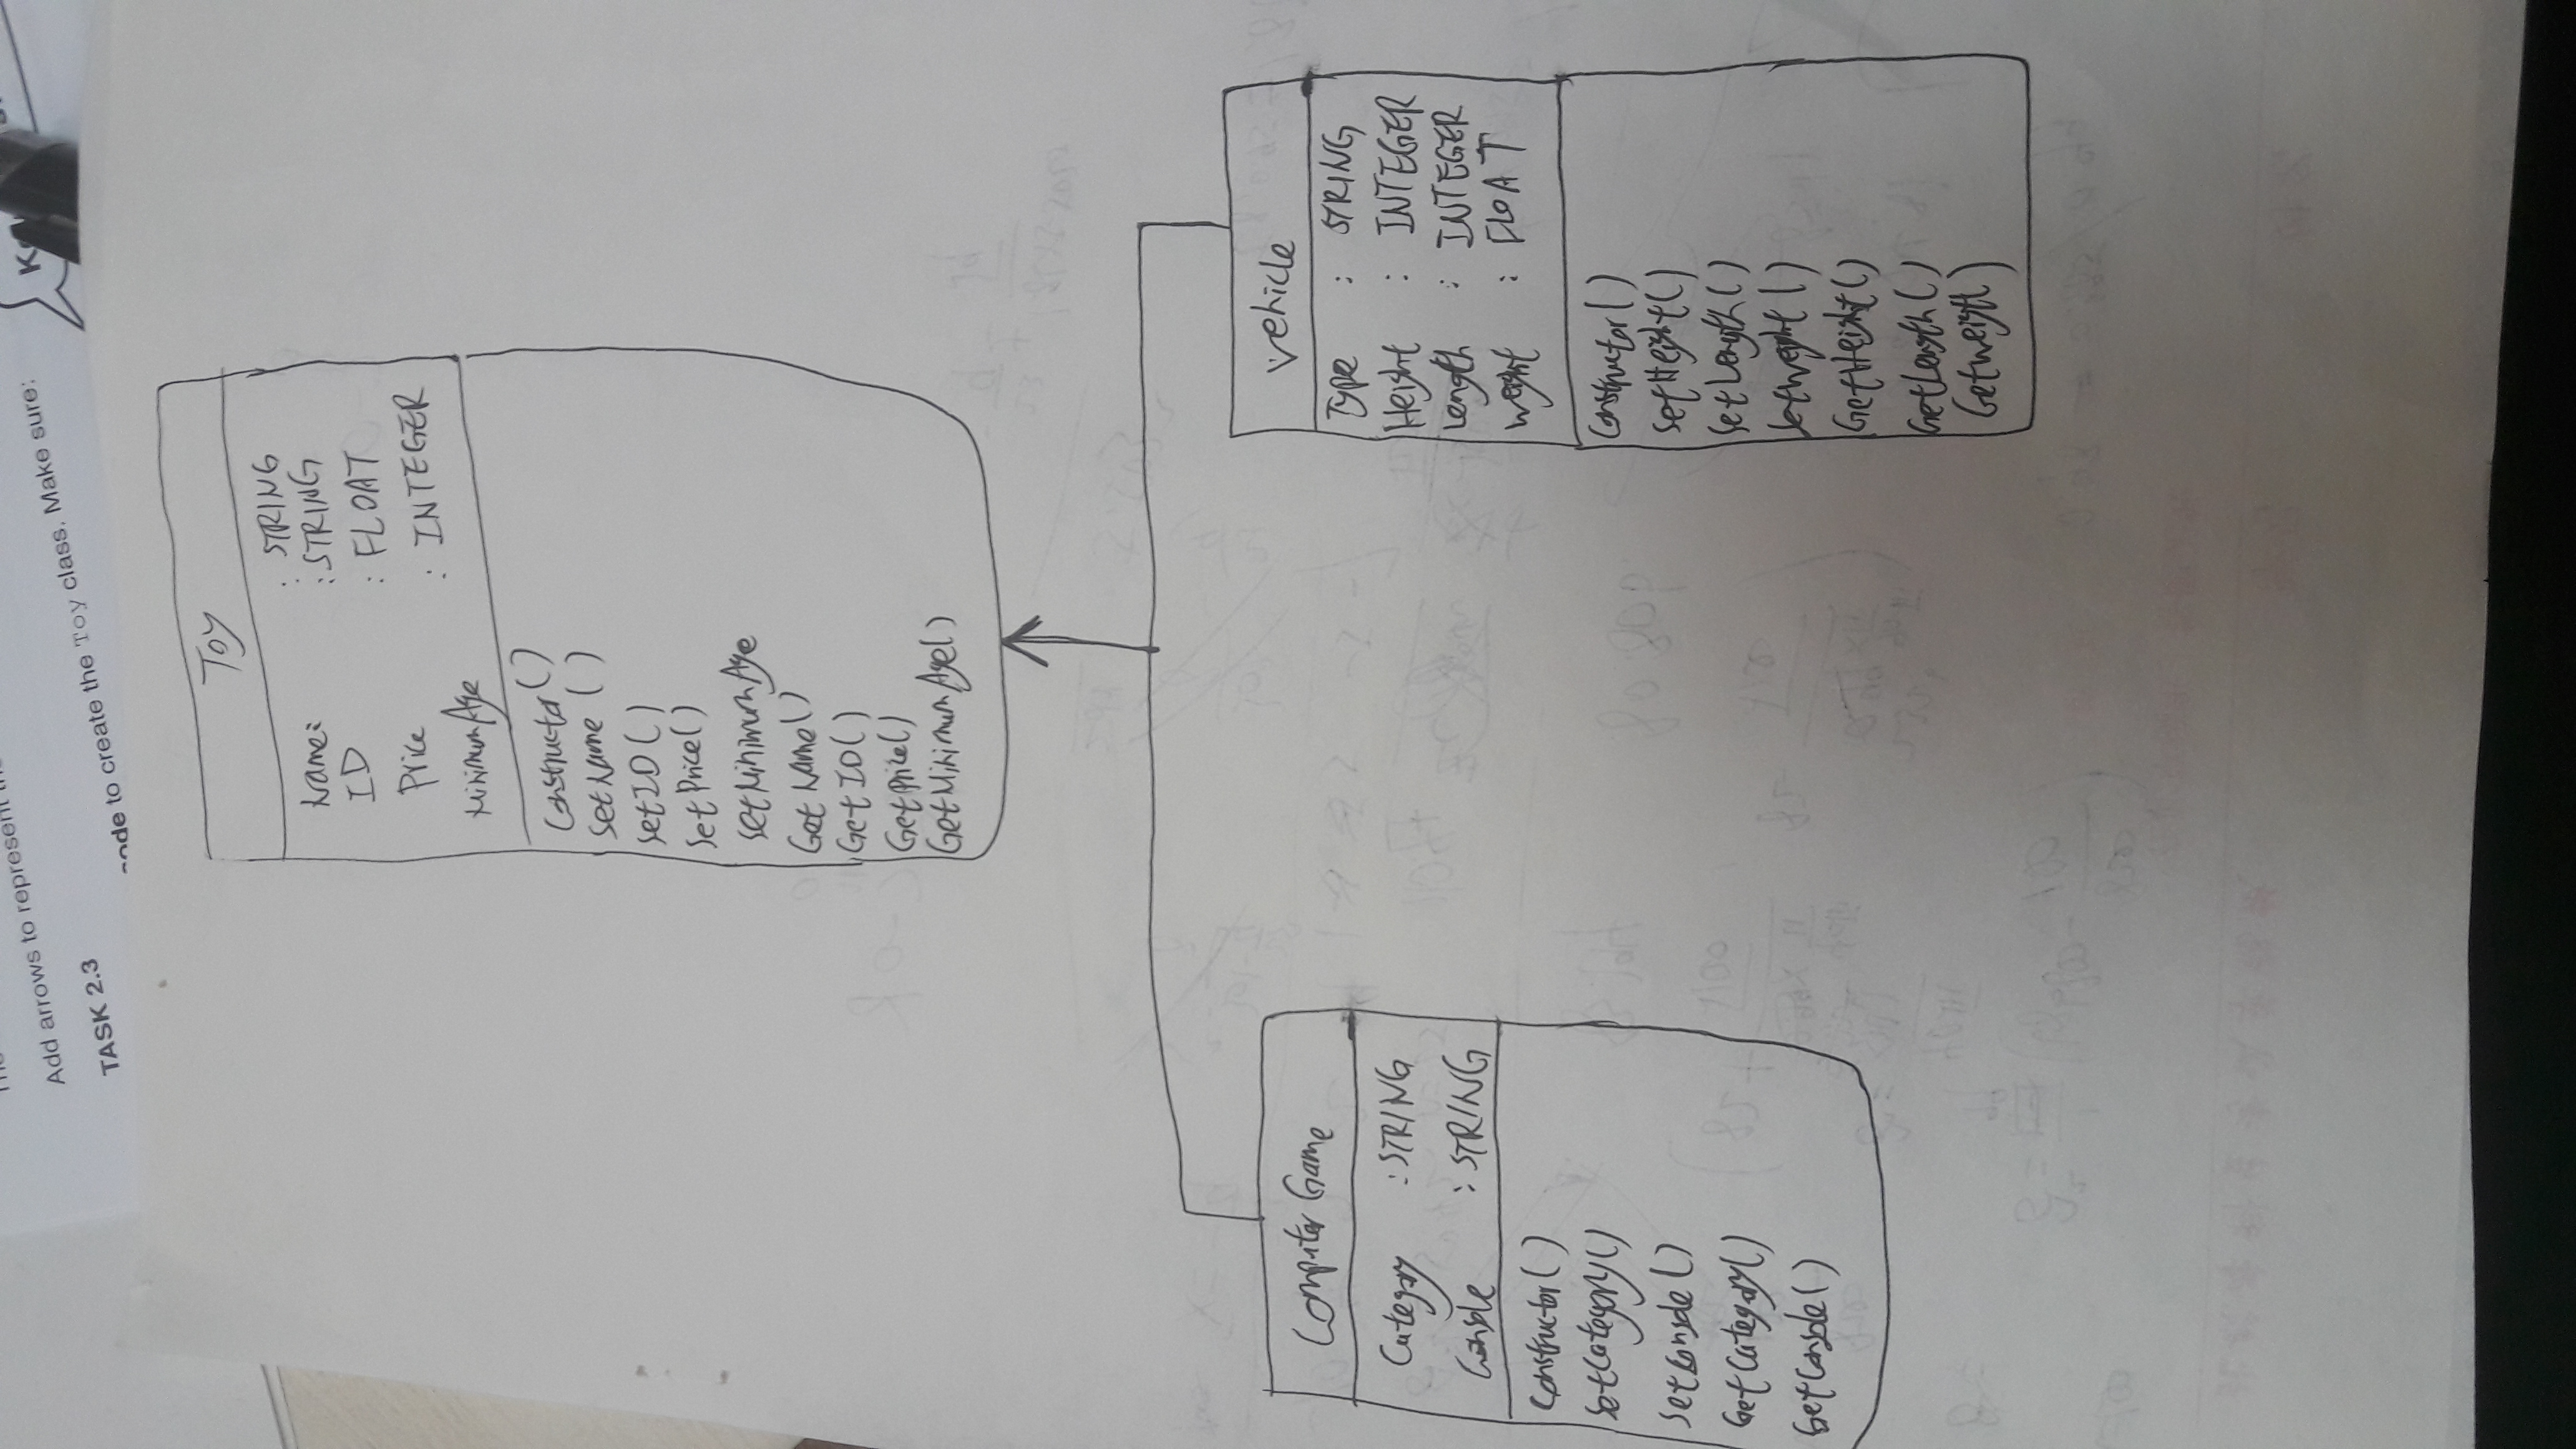 Add arrows to represent
TASK 2.3
to create the Toy class. Make sure:
Toy
Name: : STRING
ID : STRING
Price : FLOAT
MinimumAge : INTEGER
Constructor()
SetName ()
SetID()
SetPrice()
SetMinimumAge
GetName()
GetID()
GetPrice()
GetMinimumAge()
Computer Game
Category : STRING
Console : STRING
Constructor()
SetCategory()
SetConsole()
GetCategory()
GetConsole()
Vehicle
Type : STRING
Height : INTEGER
Length : INTEGER
Weight : FLOAT
Constructor()
SetHeight()
SetLength()
SetWeight()
GetHeight()
GetLength()